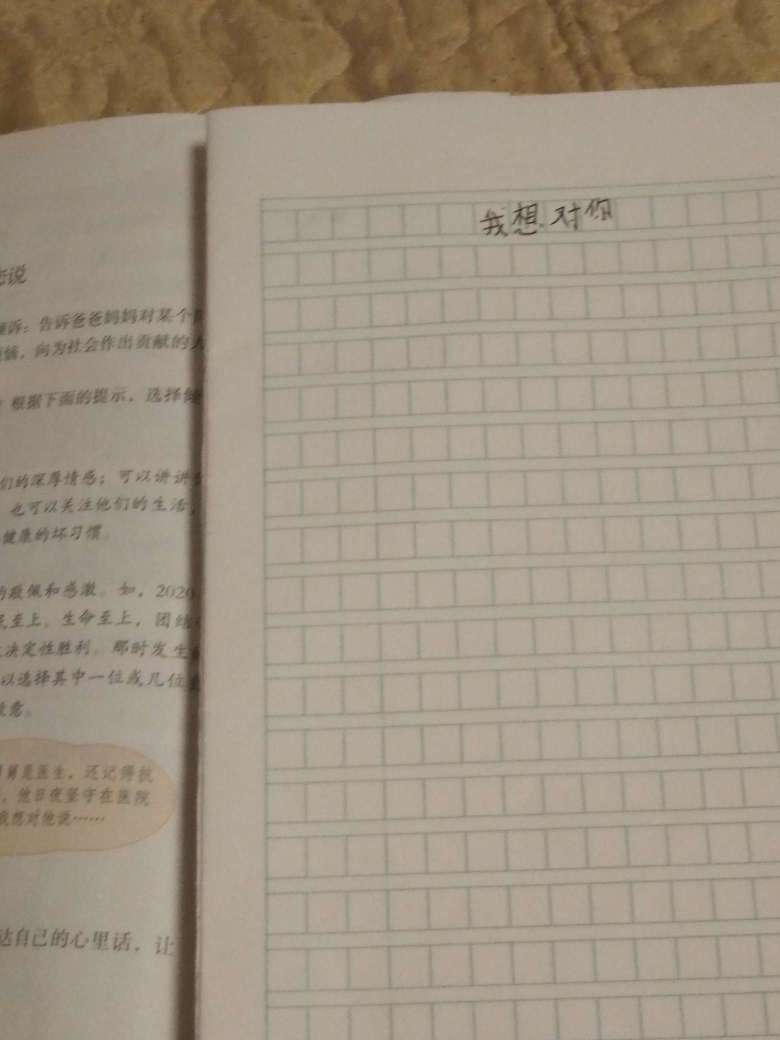 说
诉：告诉爸爸妈妈对某个
，向为社会作出贡献的
根据下面的提示，选择
们的深厚情感；可以讲讲
也可以关注他们的生活，
健康的坏习惯。
敬佩和感激。如，2020
至上、生命至上，团结
决定性胜利。那时发生
以选择其中一位或几位
意。
是医生，还记得抗
，他日夜坚守在医院
我想对他说……
达自己的心里话，让
我想对你